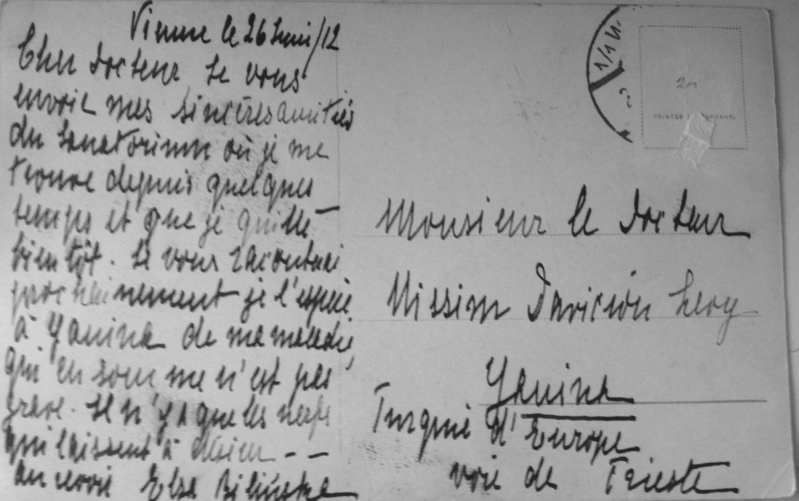 Vienne le 26 Juin/12
Cher docteur Je vous
envoie mes sincères amitiés
du Sanatorium où je me
trouve depuis quelques
temps et que je quitte
bientôt. Je vous raconterai
prochainement je l'espère
à Yanina de ma maladie,
qui en somme n'est pas
grave. Il n'y a que les nerfs
qui laissent à désirer - -
au revoir Elsa
Monsieur le Docteur
Nissim Davicion Levy
Yanina
Turquie d'Europe
voie de Trieste